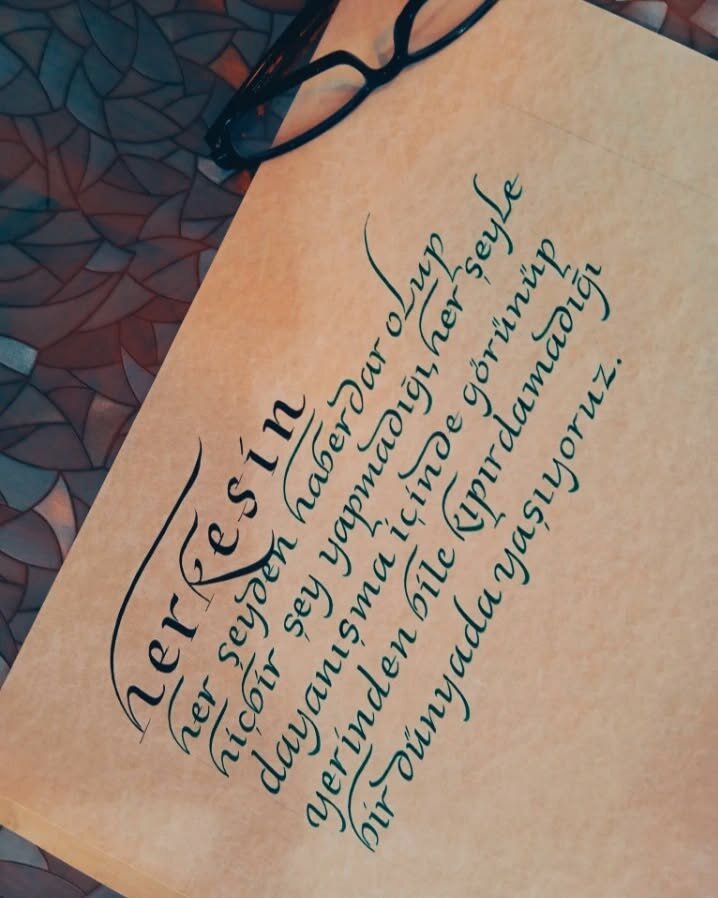 herkesin
her şeyden haberdar olup
hiçbir şey yapmadığı, her şeyle
dayanışma içinde görünüp
yerinden bile kıpırdamadığı
bir dünyada yaşıyoruz.